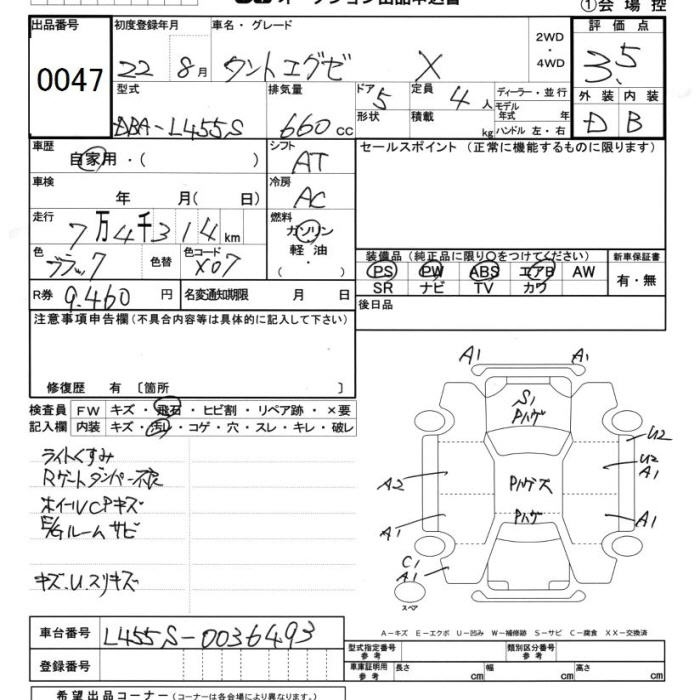 ①会 場 控
出品番号 初度登録年月 車名・グレード 評 価 点
0047 22 8月 タントエグゼ X 2WD ・ 4WD 3.5
型式 排気量 ドア 5 定員 4人 ディーラー・並行 外 装 内 装
DBA-L455S 660cc 形状 積載 kg モデル年式 年 ハンドル 左・右 D B
車歴 シフト セールスポイント (正常に機能するものに限ります)
自家用・( ) AT
車検 冷房
年 月( 日) AC
走行 燃料
7万4千314km ガソリン
軽 油
・( )
色 色替 色コード 装備品 (純正品に限り○をつけてください) 新車保証書
ブラック X07 PS PW ABS エアB AW 有・無
SR ナビ TV カワ
R券 9,460円 名変通知期限 月 日 後日品
注意事項申告欄 (不具合内容等は具体的に記入して下さい)
修復歴 有 〔箇所 〕
検査員 FW キズ・飛石・ヒビ割・リペア跡・×要
記入欄 内装 キズ・汚レ・コゲ・穴・スレ・キレ・破レ
ライトくすみ
Rゲートダンパー不良
ホイールCPキズ
E/Gルームサビ
キズ.U.スリキズ
A1 A1
S1
Pハゲ
U2
U2
A1
A2 Pハゲス
A1 Pハゲ A1
C1
A1
スペア
A-キズ E-エクボ U-凹み W-補修跡 S-サビ C-腐食 XX-交換済
車台番号 L455S-0036493
型式指定番号 参 考 類別区分番号 参 考
登録番号 車庫証明用 参 考 長さ cm 幅 cm 高さ cm
希望出品コーナー (コーナーは各会場により異なります。)